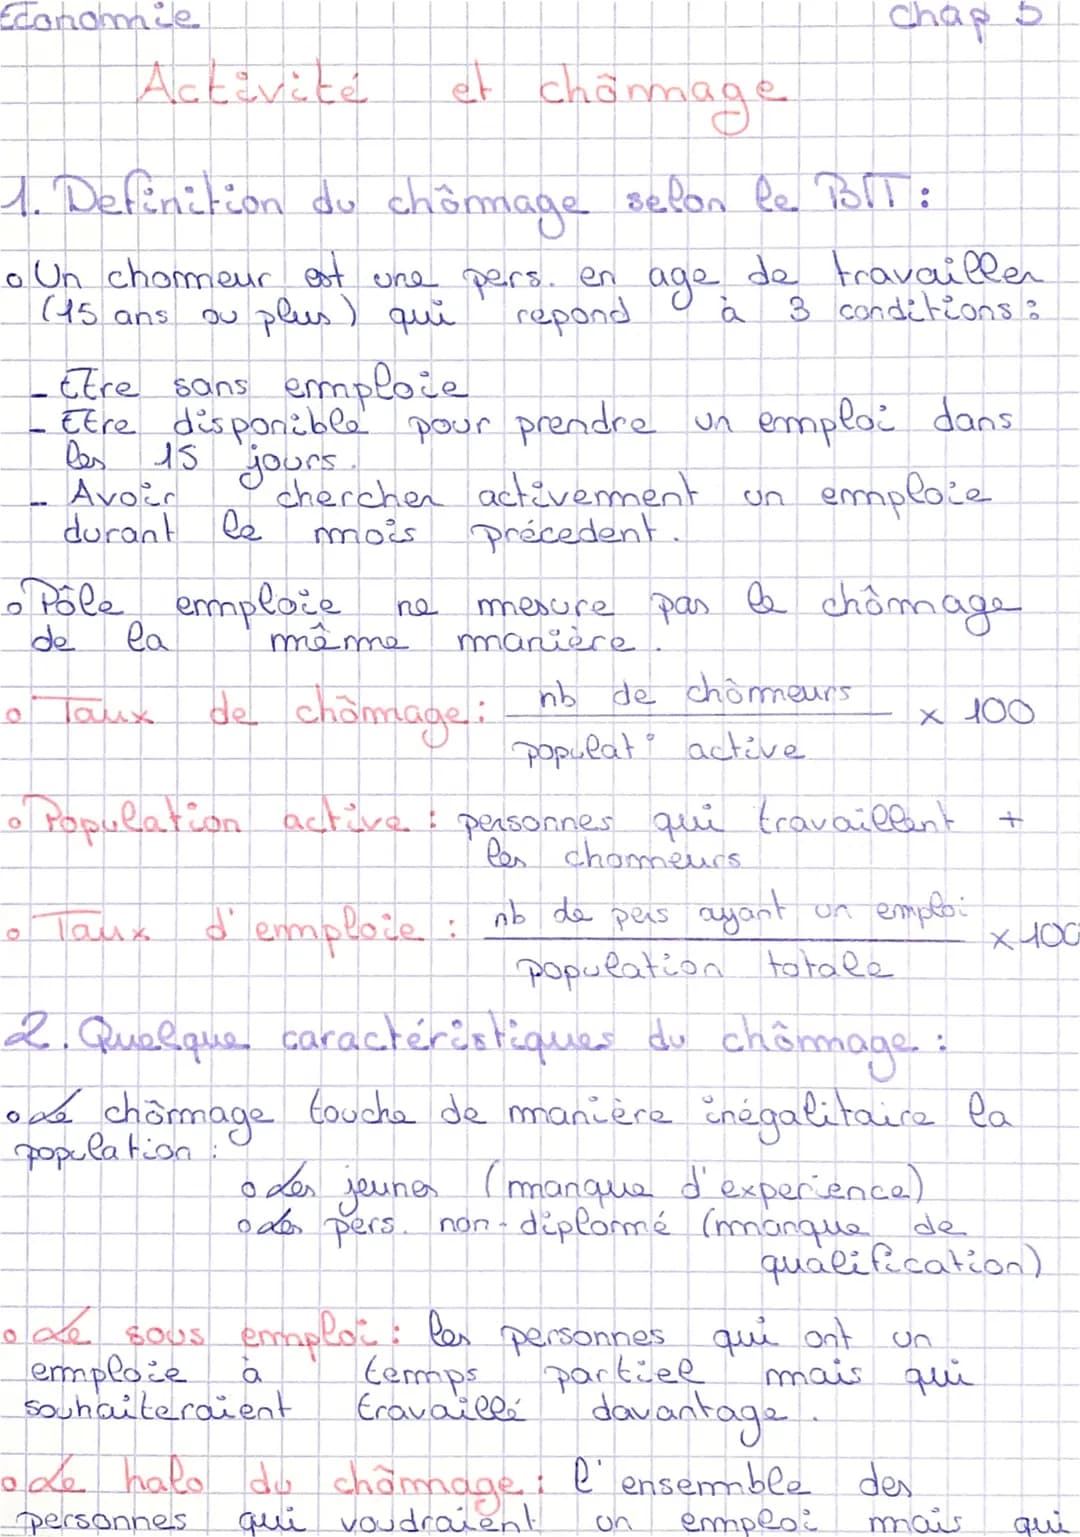 Economie chap 5
Activité et chômage
1. Definition du chômage selon le BIT :
o Un chomeur est une pers. en age de travailler
(15 ans ou plus) qui repond à 3 conditions :
- Etre sans emploie
- Etre disponible pour prendre un emploi dans
les 15 jours.
- Avoir chercher activement un emploie
durant le mois précedent.
o Pôle emploie ne mesure pas le chômage
de la même manière.
o Taux de chômage : nb de chômeurs
x 100
populat° active
o Population active : personnes qui travaillent +
les chomeurs
o Taux d'emploie : nb de pers ayant un emploi
x 100
population totale
2. Quelque caractéristiques du chômage :
o Le chômage touche de manière inégalitaire la
population :
o Les jeunes (manque d'experience)
o Les pers. non-diplomé (manque de
qualification)
o Le sous emploi : les personnes qui ont un
emploie à temps partiel mais qui
souhaiteraient travaillé davantage.
o Le halo du chômage : l'ensemble des
personnes qui voudraient un emploi mais qui